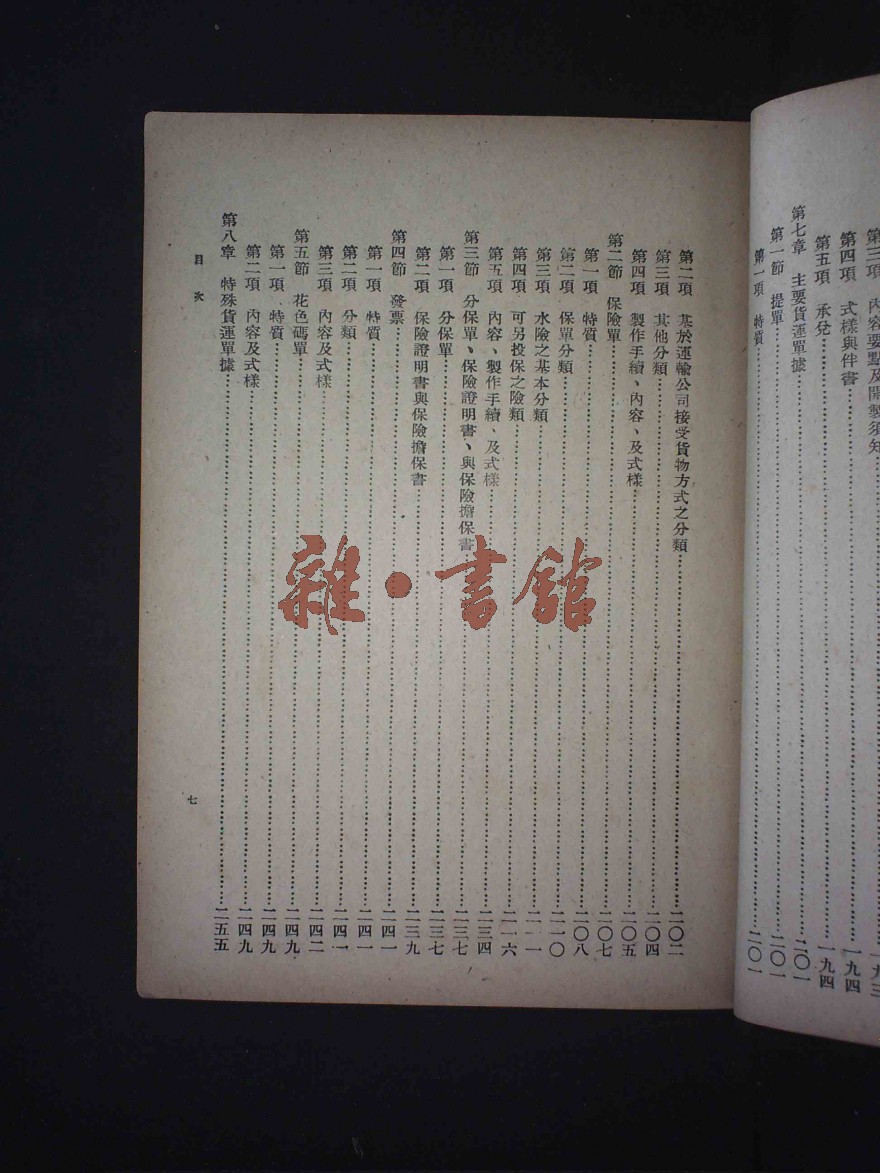 第三項　內容要點及開製須知……一九三
第四項　式樣與伴書……一九四
第五項　承兌……一九四
第七章　主要貨運單據……二〇一
第一節　提單……二〇一
第一項　特質……二〇一
第二項　基於運輸公司接受貨物方式之分類……二〇二
第三項　其他分類……二〇四
第四項　製作手續、內容、及式樣……二〇五
第二節　保險單……二〇七
第一項　特質……二〇八
第二項　保單分類……二一〇
第三項　水險之基本分類……二一一
第四項　可另投保之險類……二一六
第五項　內容、製作手續、及式樣……二三四
第三節　分保單、保險證明書、與保險擔保書……二三七
第一項　分保單……二三七
第二項　保險證明書與保險擔保書……二三九
第四節　發票……二四一
第一項　特質……二四一
第二項　分類……二四一
第三項　內容及式樣……二四二
第五節　花色碼單……二四九
第一項　特質……二四九
第二項　內容及式樣……二四九
第八章　特殊貨運單據……二五五
目次
七
雜·書館